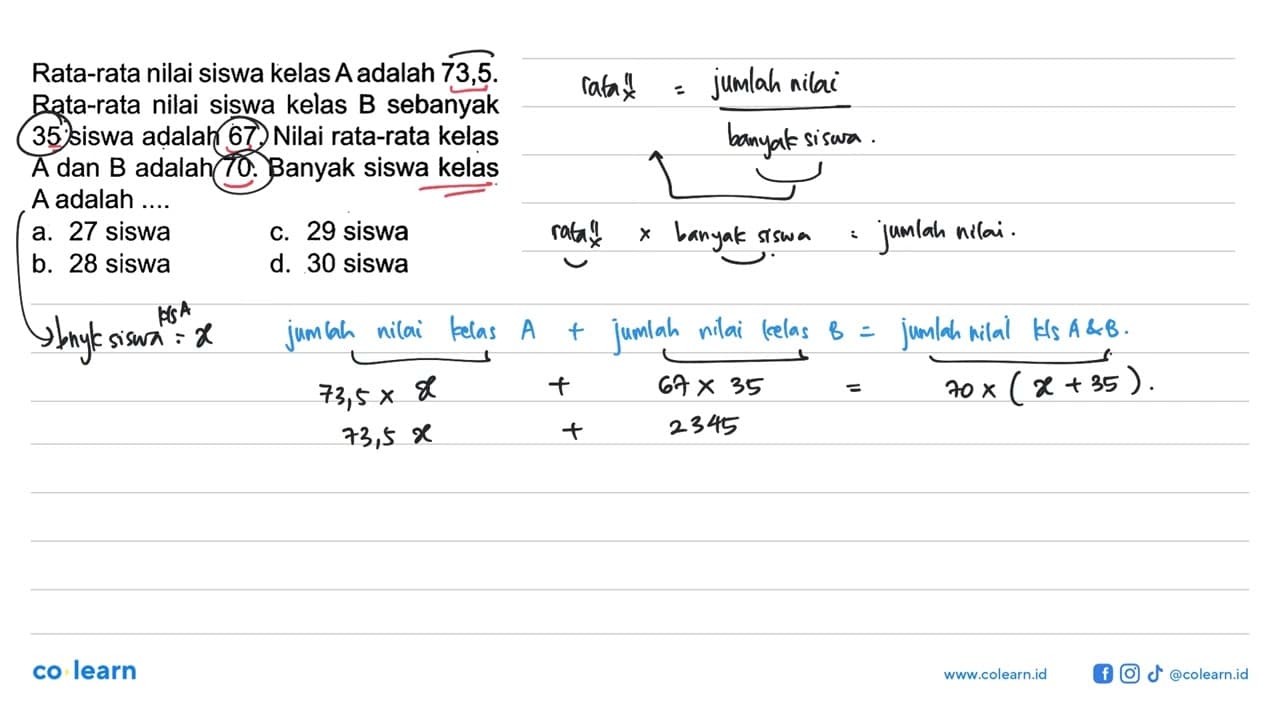 Rata-rata nilai siswa kelas A adalah 73,5.
Rata-rata nilai siswa kelas B sebanyak
35 siswa adalah 67. Nilai rata-rata kelas
A dan B adalah 70. Banyak siswa kelas
A adalah ....
a. 27 siswa
c. 29 siswa
b. 28 siswa
d. 30 siswa
rata" = jumlah nilai
banyak siswa.
rata" x banyak siswa = jumlah nilai.
kls A
bnyk siswa = x
jumlah nilai kelas A + jumlah nilai kelas B = jumlah nilai kls A & B.
73,5 x x + 67 x 35 = 70 x (x + 35).
73,5 x + 2345
co learn
www.colearn.id
@colearn.id